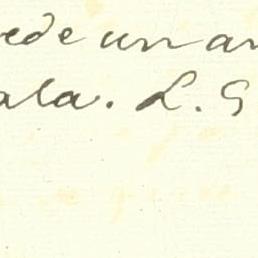 ede un an
ala. L. G